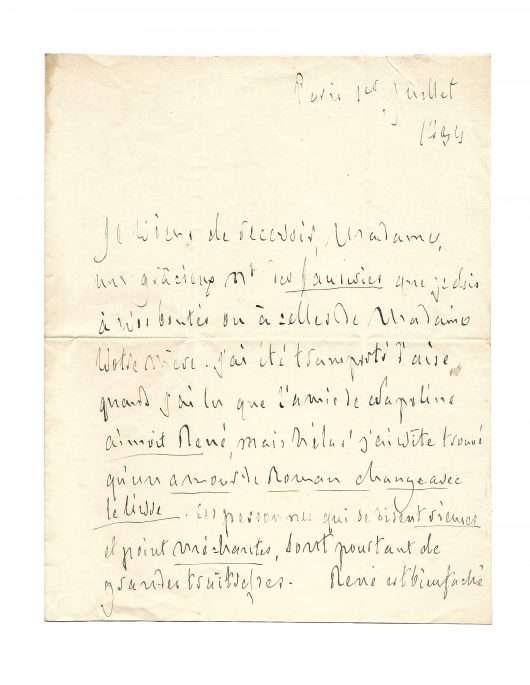 Paris 1er Juillet
18
Je viens de recevoir, Madame,
un gracieux No des que je dois
à vos bontés ou à celles de Madame
votre mère. j'ai été transporté d'aise,
quand j'ai lu que l'amie de
aimoit René, mais hélas! j'ai vite trouvé
qu'un amour de Roman change avec
le livre. Les personnes qui se disent rieuses
et point méchantes, sont pourtant de
grandes traitresses. René est bien faché